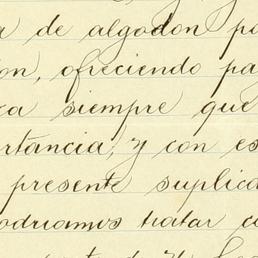 a de algodon po
on, ofreciendo pa
ra siempre que
rtancia, y con es
presente suplica
odriamos tratar co